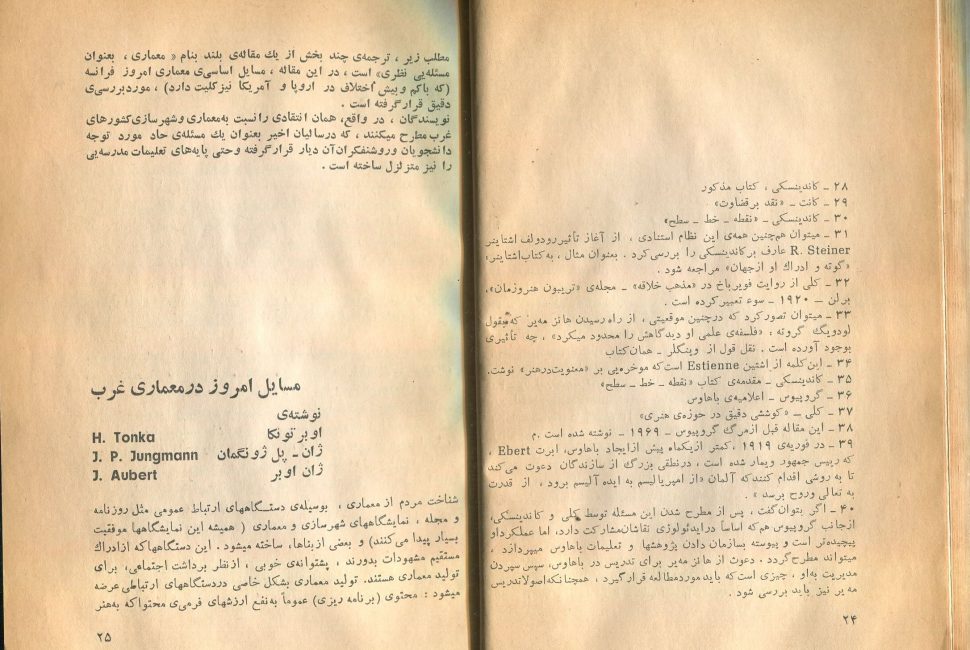 ۲۸ ـ کاندینسکی ، کتاب مذکور
۲۹ ـ کانت ـ «نقد برقضاوت»
۳۰ ـ کاندینسکی ـ «نقطه ـ خط ـ سطح»
۳۱ ـ میتوان هم‌چنین همه‌ی این نظام استنادی ، از آغاز تأثیر رودولف اشتاینر
R. Steiner عارف برکاندینسکی را بررسی‌کرد . بعنوان مثال ، به‌کتاب‌اشتاینر»
«گوته و ادراک او ازجهان» مراجعه شود .
۳۲ ـ کلی از روایت فویرباخ در «مذهب خلاقه» ـ مجله‌ی «تریبون هنروزمان»،
برلن ــ ۱۹۲۰ ـ سوء تعبیرکرده است .
۳۳ ـ میتوان تصورکرد که درچنین موقعیتی ، از راه رسیدن هانز مه‌یر که‌بقول
لودویگ گروته : «فلسفه‌ی علمی او دیدگاهش را محدود میکرد» ، چه تأثیری
بوجود آورده است . نقل قول از وینگلر ـ همان‌کتاب
۳۴ ـ این‌کلمه از اشتین Estienne است‌که موخره‌یی بر «معنویت‌درهنر» نوشت.
۳۵ ـ کاندینسکی ـ مقدمه‌ی کتاب «نقطه ـ خط ـ سطح»
۳۶ ـ گروپیوس ـ اعلامیه‌ی باهاوس
۳۷ ـ کلی ـ «کوششی دقیق در حوزه‌ی هنری»
۳۸ ـ این مقاله قبل ازمرگ گروپیوس ـ ۱۹۶۹ ـ نوشته شده است .م
۳۹ ـ در فوریه‌ی ۱۹۱۹ ،کمتر ازیکماه پیش ازایجاد باهاوس، ابرت Ebert ،
که رییس جمهور ویمار شده است ، درنطقی بزرگ از سازندگان دعوت می‌کند
تا به روشی اقدام کنندکه آلمان «از امپریالیسم به ایده آلیسم برود ، از قدرت
به تعالی وروح برسد » .
۴۰ ـ اگر بتوان‌گفت ، پس از مطرح شدن این مسئله توسط کلی و کاندینسکی،
ازجانب گروپیوس هم‌که اساسا درایدئولوژی نقاشان‌مشارکت دارد، اما عملکرداو
پیچیده‌تر است و پیوسته بسازمان دادن پژوهشها و تعلیمات باهاوس میپردازد ،
میتواند مطرح‌گردد . دعوت از هانز مه‌یر برای تدریس در باهاوس، سپس سپردن
مدیریت به‌او ، چیزی است‌که باید موردمطالعه قرارگیرد ، همچنانکه‌اصولاتدریس
مه یر نیز باید بررسی شود .
۲۴
مطلب زیر ، ترجمه‌ی چند بخش از یك مقاله‌ی بلند بنام « معماری ، بعنوان
مسئله‌یی نظری» است ، در این مقاله ، مسایل اساسی‌ی معماری امروز فرانسه
(که باکم وبیش اختلاف در اروپا و آمریکا نیزکلیت دارد) ، موردبررسی‌ی
دقیق قرارگرفته است .
نویسندگان ، در واقع، همان انتقادی رانسبت به‌معماری وشهرسازی‌کشورهای
غرب مطرح میکنند ، که درسالیان اخیر بعنوان یك مسئله‌ی حاد مورد توجه
دانشجویان وروشنفکران‌آن دیار قرارگرفته وحتی پایه‌های تعلیمات مدرسه‌یی
را نیز متزلزل ساخته است .
مسایل امروز درمعماری غرب
نوشته‌ی
اوبرتونکا H. Tonka
ژان ـ پل ژونگمان J. P. Jungmann
ژان اوبر J. Aubert
شناخت مردم از معماری ، بوسیله‌ی دستگاههای ارتباط عمومی مثل روزنامه
و مجله ، نمایشگاههای شهرسازی و معماری ( همیشه این نمایشگاهها موفقیت
بسیار پیدا می‌کنند) و بعضی ازبناها، ساخته میشود . این دستگاههاکه ازادراك
مستقیم مشهودات بدورند ، پشتوانه‌ی خوبی ، ازنظر برداشت اجتماعی، برای
تولید معماری هستند. تولید معماری بشکل خاصی دردستگاههای ارتباطی‌عرضه
میشود : محتوی (برنامه ریزی) عموماً به‌نفع ارزشهای فرمی‌ی محتواکه به‌هنر
۲۵